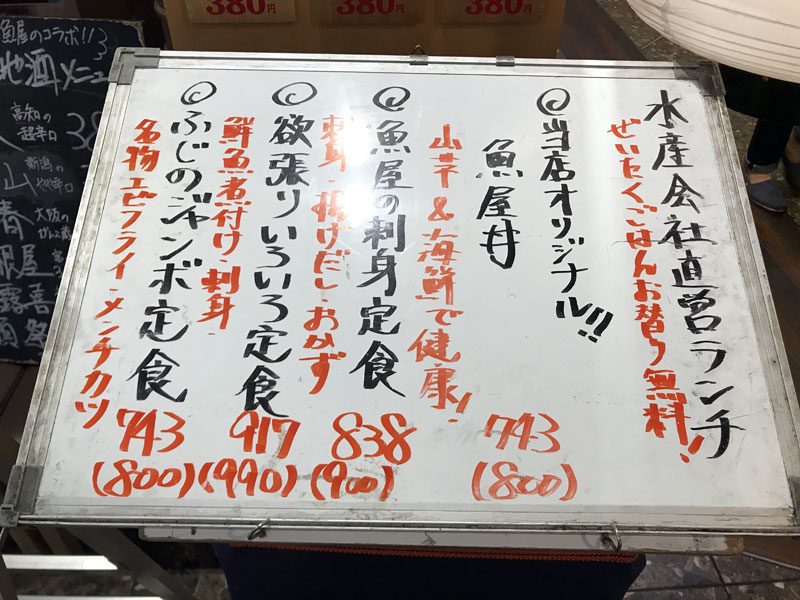 水産会社直営ランチ
ぜいたくごはんお替り無料!
◎当店オリジナル!!
魚屋丼
山芋&海鮮で健康!
743
(800)
◎魚屋の刺身定食
刺身・揚げだし・おかず
838
(900)
◎欲張りいろいろ定食
鮮魚煮付け・刺身・
917
(990)
◎ふじのジャンボ定食
名物エビフライ・メンチカツ
743
(800)
380円
380円
380円
魚屋のコラボ!!
地酒メニュ
高知の
超辛口
新潟の
大阪の